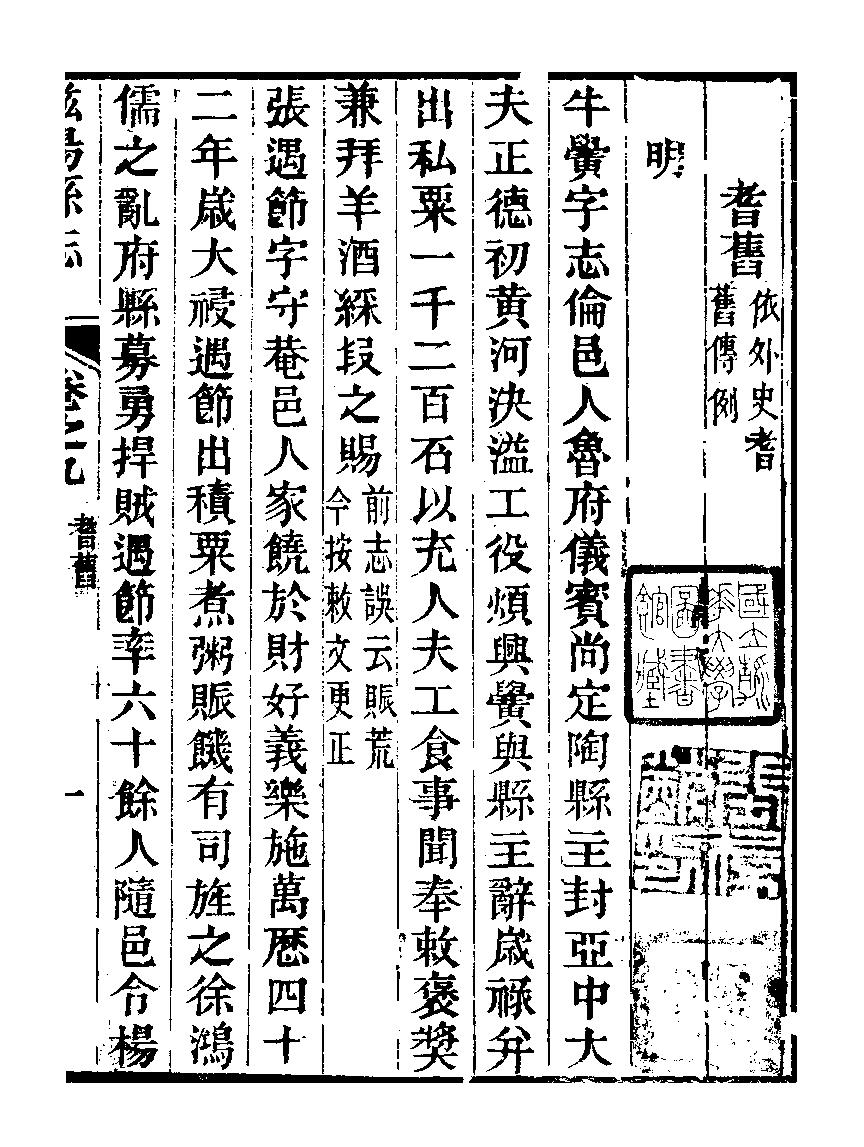 耆舊
依外史耆
舊傳例
明
牛黌字志倫邑人魯府儀賓尚定陶縣主封亞中大
夫正德初黃河決溢工役煩興黌與縣主辭歲祿并
出私粟一千二百石以充人夫工食事聞奉敕褒獎
兼拜羊酒綵段之賜
前志誤云賑荒
今按敕文更正
張遇節字守菴邑人家饒於財好義樂施萬曆四十
二年歲大祲遇節出積粟煮粥賑饑有司旌之徐鴻
儒之亂府縣募勇捍賊遇節率六十餘人隨邑令楊
陽縣志
卷之九
耆舊
一
國立
大學
圖書
館藏